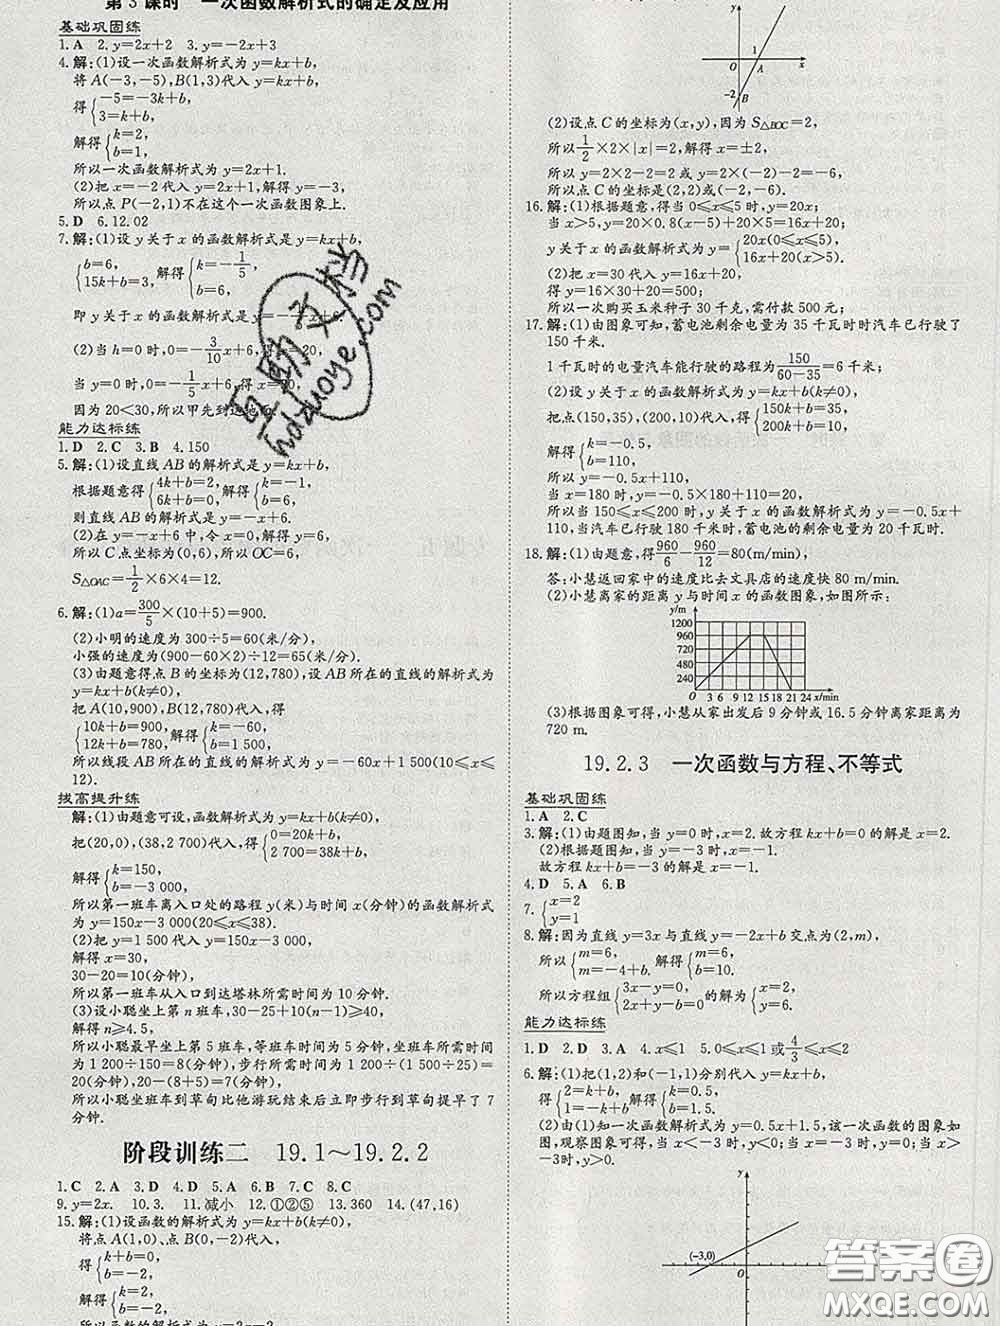 第3课时 一次函数解析式的确定及应用
基础巩固练
1. A 2. y=2x+2 3. y=-2x+3
4. 解:(1)设一次函数解析式为 y=kx+b,
将 A(-3,-5),B(1,3)代入,
得{-5=-3k+b,
3=k+b,
解得{k=2,
b=1,
所以一次函数解析式为 y=2x+1.
(2)把 x=-2 代入 y=2x+1,解得 y=-3,
所以点 P(-2,1)不在这个一次函数图象上.
5. D 6. 12.02
7. 解:(1)设 y 关于 x 的函数解析式是 y=kx+b,
{b=6,
15k+b=3, 解得{k=-1/5,
b=6,
即 y 关于 x 的函数解析式是 y=-1/5x+6.
(2)当 h=0 时,0=-3/10x+6,得 x=20,
当 y=0 时,0=-1/5x+6,得 x=30,
因为 20<30,所以甲先到达地面.
能力达标练
1. D 2. C 3. B 4. 150
5. 解:(1)设直线 AB 的解析式是 y=kx+b,
根据题意得{4k+b=2,
6k+b=0, 解得{k=-1,
b=6,
则直线 AB 的解析式为 y=-x+6.
(2)在 y=-x+6 中,令 x=0,解得 y=6,
所以 C 点坐标为(0,6),所以 OC=6,
S△OAC=1/2×6×4=12.
6. 解:(1)a=300/5×(10+5)=900.
(2)小明的速度为 300÷5=60(米/分),
小强的速度为(900-60×2)÷12=65(米/分).
(3)由题意得点 B 的坐标为(12,780),设 AB 所在的直线的解析式为
y=kx+b(k≠0),
把 A(10,900),B(12,780)代入,得
{10k+b=900,
12k+b=780, 解得{k=-60,
b=1 500,
所以线段 AB 所在的直线的解析式为 y=-60x+1 500(10≤x≤
12).
拔高提升练
解:(1)由题意可设,函数解析式为 y=kx+b(k≠0),
把(20,0),(38,2 700)代入,得{0=20k+b,
2 700=38k+b,
解得{k=150,
b=-3 000,
所以第一班车离入口处的路程 y(米)与时间 x(分钟)的函数解析式
为 y=150x-3 000(20≤x≤38).
(2)把 y=1 500 代入 y=150x-3 000,
解得 x=30,
30-20=10(分钟),
所以第一班车从入口到达塔林所需时间为 10 分钟.
(3)设小聪坐上第 n 班车,30-25+10(n-1)≥40,
解得 n≥4.5,
所以小聪最早坐上第 5 班车,等班车时间为 5 分钟,坐班车所需时间
为 1 200÷150=8(分钟),步行所需时间为 1 200÷(1 500÷25)
=20(分钟),20-(8+5)=7(分钟),
所以小聪坐班车到草甸比他游玩结束后立即步行到草甸提早了 7
分钟.
阶段训练二 19.1～19.2.2
1. C 2. C 3. A 4. D 5. A 6. B 7. C 8. C
9. y=2x. 10. 3. 11. 减小 12. ①②⑤ 13. 360 14. (47,16)
15. 解:(1)设函数的解析式为 y=kx+b(k≠0),
将点 A(1,0)、点 B(0,-2)代入,
得{k+b=0,
b=-2,
解得{k=2,
b=-2,
所以函数的解析式为 y=2x-2.
y
O 1 A x
-2 B
(2)设点 C 的坐标为(x,y),因为 S△BOC=2,
所以 1/2×2×|x|=2,解得 x=±2,
所以 y=2×2-2=2 或 y=2×(-2)-2=-6.
所以点 C 的坐标是(2,2)或(-2,-6).
16. 解:(1)根据题意,得当 0≤x≤5 时,y=20x;
当 x>5,y=20×0.8(x-5)+20×5=16x+20,
y 关于 x 的函数解析式为 y={20x(0≤x≤5),
16x+20(x>5).
(2)把 x=30 代入 y=16x+20;
得 y=16×30+20=500;
所以一次购买玉米种子 30 千克,需付款 500 元;
17. 解:(1)由图象可知,蓄电池剩余电量为 35 千瓦时时汽车已行驶了
150 千米.
1 千瓦时的电量汽车能行驶的路程为 150/(60-35)=6 千米.
(2)设 y 关于 x 的函数解析式为 y=kx+b(k≠0),
把点(150,35),(200,10)代入,得{150k+b=35,
200k+b=10,
解得{k=-0.5,
b=110,
所以 y=-0.5x+110,
当 x=180 时,y=-0.5×180+110=20,
所以当 150≤x≤200 时,y 关于 x 的函数解析式为 y=-0.5x+
110,当汽车已行驶 180 千米时,蓄电池的剩余电量为 20 千瓦时.
18. 解:(1)由题意得 960/6-960/12=80(m/min),
答:小慧返回家中的速度比去文具店的速度快 80 m/min.
(2)小慧离家的距离 y 与时间 x 的函数图象,如图所示:
y/m
1200
960
720
480
240
0 3 6 9 12 15 18 21 24 x/min
(3)根据图象可得,小慧从家出发后 9 分钟或 16.5 分钟离家距离为
720 m.
19.2.3 一次函数与方程、不等式
基础巩固练
1. A 2. C
3. 解:(1)由题图知,当 y=0 时,x=2. 故方程 kx+b=0 的解是 x=2.
(2)根据题图知,当 y=-3 时,x=-1.
故方程 kx+b=-3 的解是 x=-1.
4. D 5. A 6. B
7. {x=2
y=1
8. 解:因为直线 y=3x 与直线 y=-2x+b 交点为(2,m),
所以{m=6,
m=-4+b. 解得{m=6,
b=10.
所以方程组{3x-y=0,
2x+y-b=0 的解为{x=2,
y=6.
能力达标练
1. D 2. D 3. A 4. x≤1 5. 0≤x≤1 或 4/3≤x≤2
6. 解:(1)把(1,2)和(-1,1)分别代入 y=kx+b,
得{2=k+b,
1=-k+b, 解得{k=0.5,
b=1.5.
(2)由(1)知一次函数解析式为 y=0.5x+1.5,该一次函数的图象如
图,观察图象可得,当 x<-3 时,y<0;当 x=-3 时,y=0;当 x>
-3 时,y>0.
y
(-3,0)
O
hdzuoye.com
答案圈
MXQE.COM